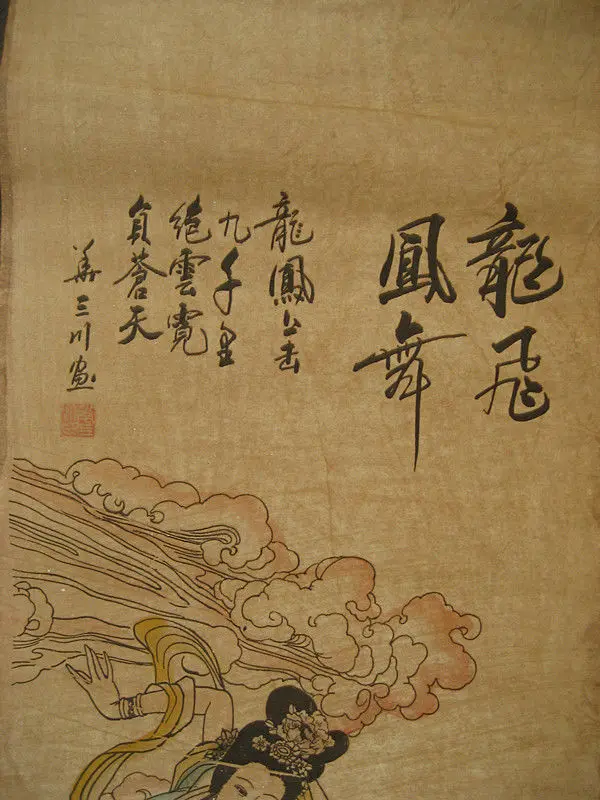 龍飛
鳳舞
龍鳳上击
九千里
絕雲霓
負蒼天
華三川畫